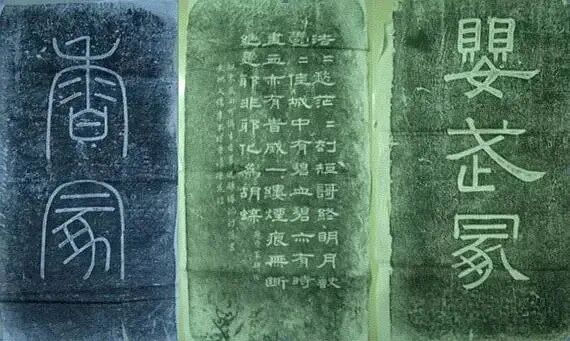 嬰武冢
浩〻愁茫〻刦短哥終明月缺
鬱〻佳城中有碧血碧亦有時
盡血亦有旹威一縷煙痕無斷
絕是耶非耶化為胡蝶
香冢